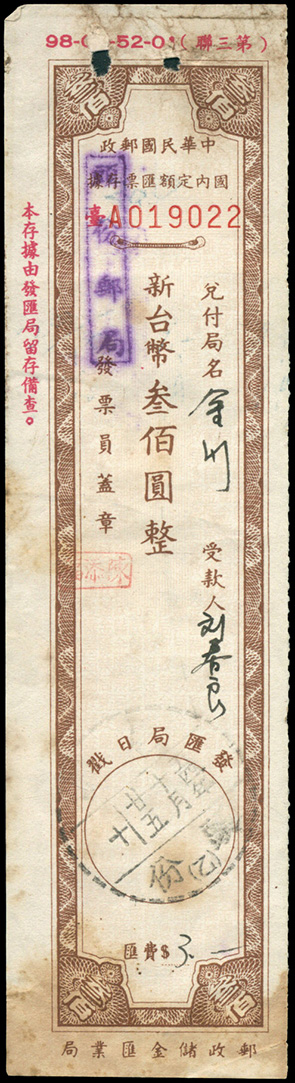 98-0 -52-0 (第三聯)
中華民國郵政
國內定額匯票存據
臺A019022
兌付局名
受款人
新台幣叁佰圓整
郵局
發票員蓋章
陳添
本存據由發匯局留存備查。
叁佰
叁佰
發匯局日戳
份
(乙)
匯費$ 3.—
叁佰
叁佰
郵政儲金匯業局